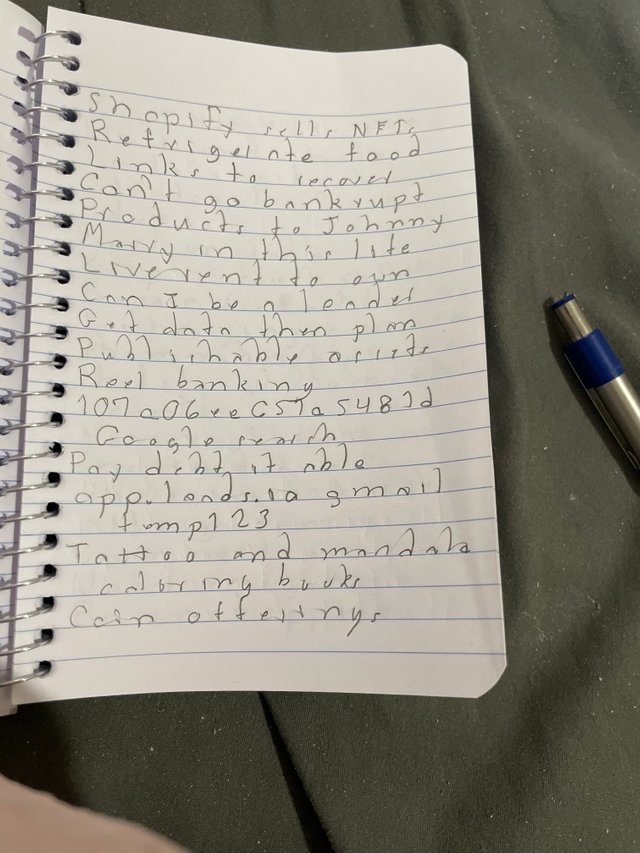 Shopify sells NFTs
Refrigerate food
Links to recover
Can't go bankrupt
Products to Johnny
Marry in this life
Live rent to own
Can I be a leader
Get data then plan
Publishable assets
Reel banking
Google search
Pay debt if able
app.lands.io gmail
temp123
Tattoo and mandala
coloring books
Coin offerings